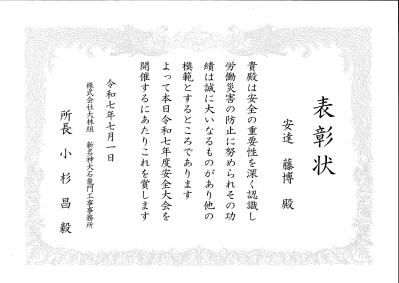 表彰状
安達 藤博 殿
貴殿は安全の重要性を深く認識し
労働災害の防止に努められその功
績は誠に大いなるものがあり他の
模範とするところであります
よって本日令和七年度安全大会を
開催するにあたりこれを賞します
令和七年七月一日
株式会社大林組 新名神大石龍門工事事務所
所長 小杉昌毅